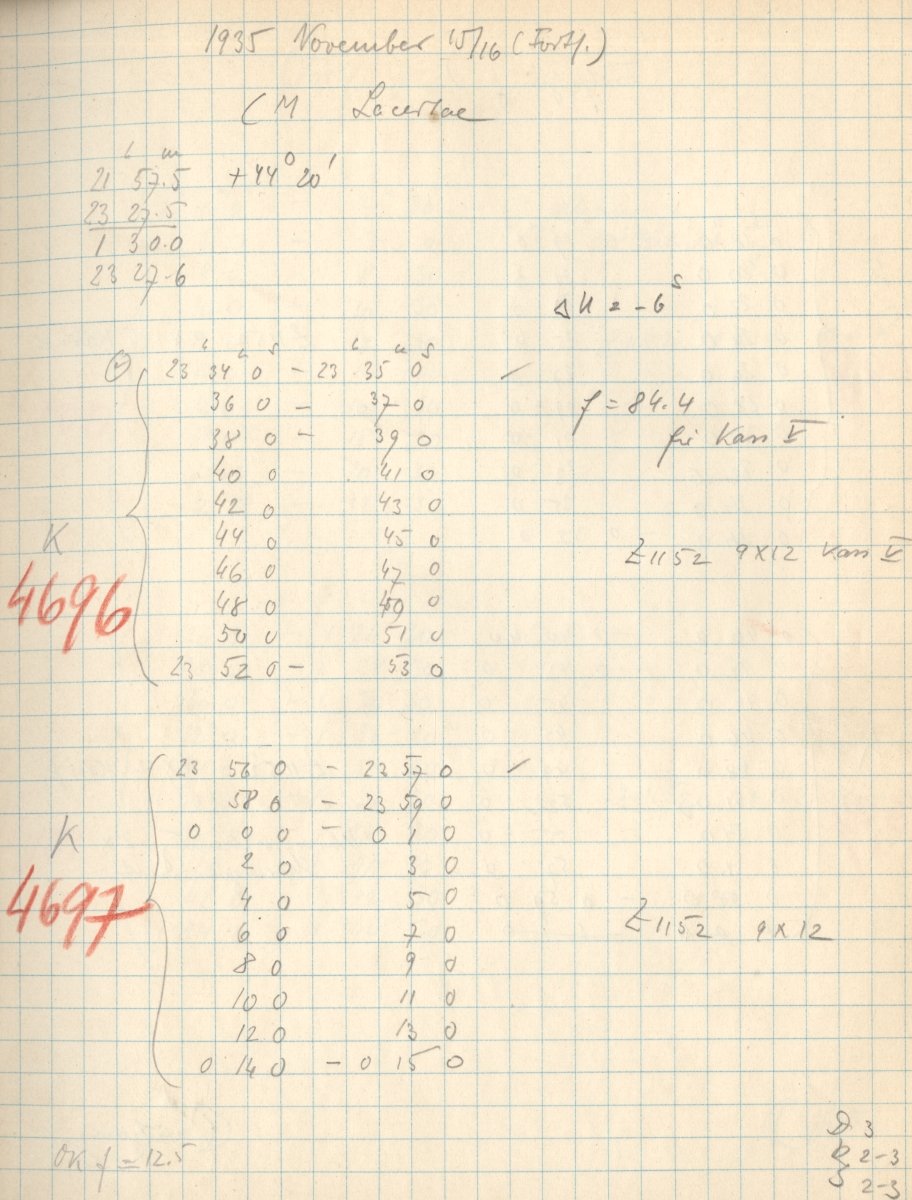 1935 November 15/16 (Forts.)
CM Lacertae
21 h 57.5 m +44° 20'
23 27.5
1 30.0
23 27.6
ΔU = -6 s
23 h 34 m 0 s - 23 h 35 m 0 s ✓
36 0 - 37 0
f = 84.4
38 0 - 39 0
für Kass V
40 0 41 0
42 0 43 0
44 0 45 0
K
Z1152 9x12 Kass V
46 0 47 0
4696
48 0 49 0
50 0 51 0
23 52 0 - 53 0
23 56 0 - 23 57 0 ✓
58 0 - 23 59 0
K
0 0 0 - 0 1 0
2 0 3 0
4697
4 0 5 0
6 0 7 0
Z1152 9x12
8 0 9 0
10 0 11 0
12 0 13 0
0 14 0 - 0 15 0
OK f = 12.5
D 3
2-3
2-3